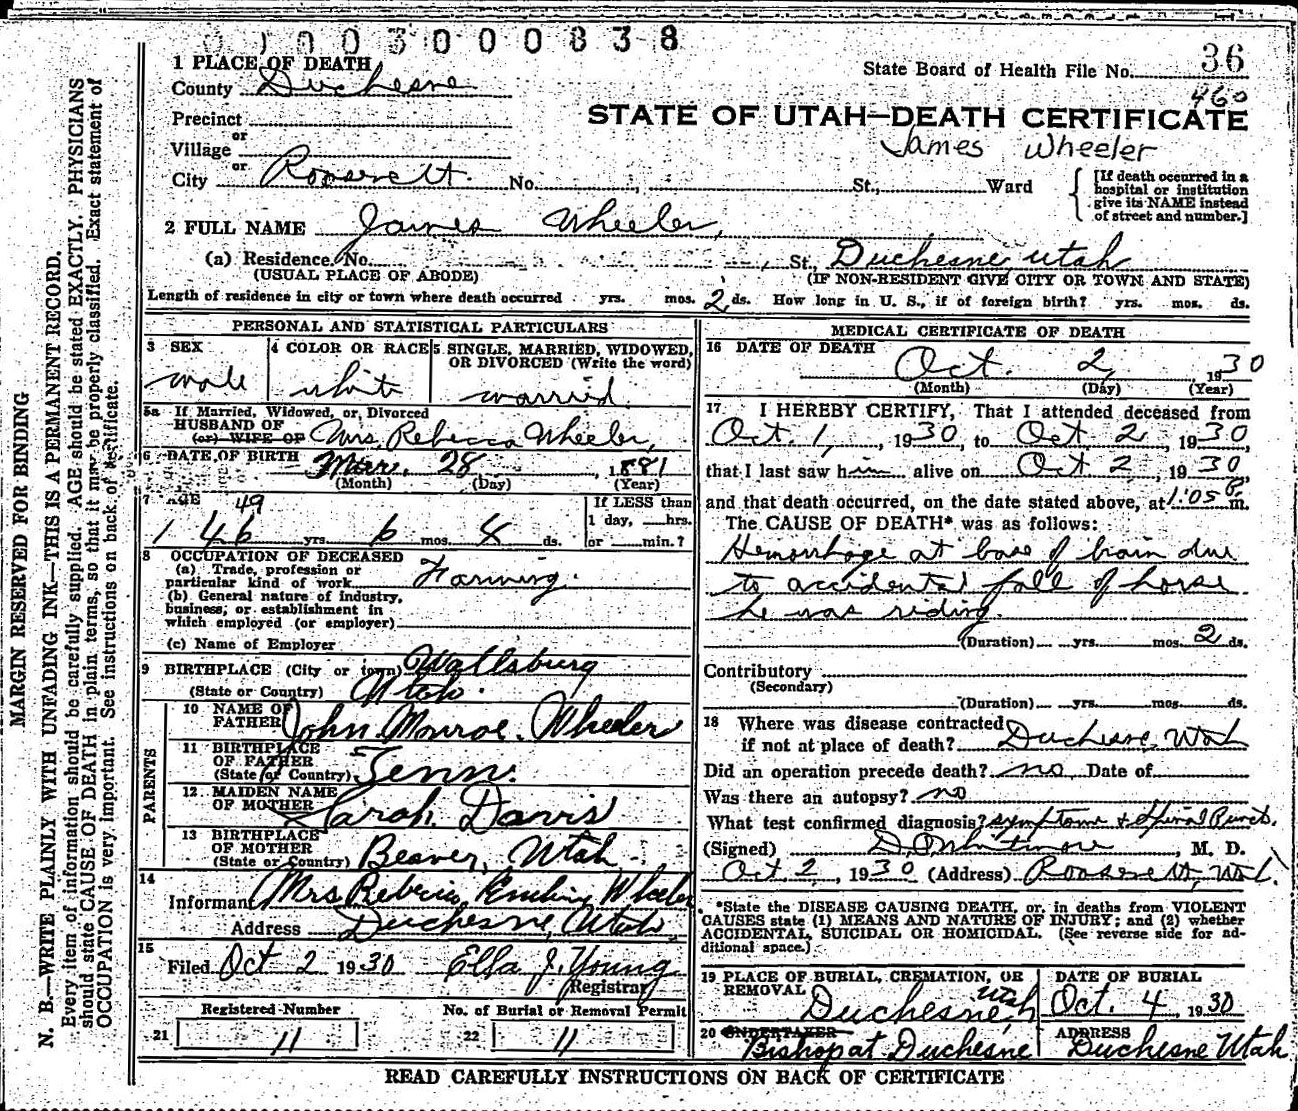 0 1 0 0 3 0 0 0 8 3 8
1 PLACE OF DEATH
County Duchesne
Precinct
or
Village
or
City Roosevelt. No. , St., Ward
State Board of Health File No. 36
460
STATE OF UTAH—DEATH CERTIFICATE
James Wheeler
[If death occurred in a
hospital or institution
give its NAME instead
of street and number.]
2 FULL NAME James Wheeler,
(a) Residence. No. , St., Duchesne, Utah
(USUAL PLACE OF ABODE) (IF NON-RESIDENT GIVE CITY OR TOWN AND STATE)
Length of residence in city or town where death occurred yrs. mos. 2 ds. How long in U. S., if of foreign birth? yrs. mos. ds.
PERSONAL AND STATISTICAL PARTICULARS
3 SEX
male
4 COLOR OR RACE
white
5 SINGLE, MARRIED, WIDOWED,
OR DIVORCED (Write the word)
married
5a If Married, Widowed, or Divorced
HUSBAND OF
(or) WIFE OF Mrs. Rebecca Wheeler,
6 DATE OF BIRTH Mar. 28 , 1881
(Month) (Day) (Year)
7 AGE 49
46 yrs. 6 mos. 4 ds.
If LESS than
1 day, hrs.
or min.?
8 OCCUPATION OF DECEASED
(a) Trade, profession or
particular kind of work Farming.
(b) General nature of industry,
business, or establishment in
which employed (or employer)
(c) Name of Employer
9 BIRTHPLACE (City or town) Wallsburg
(State or Country) Utah.
PARENTS
10 NAME OF
FATHER John Monroe Wheeler
11 BIRTHPLACE
OF FATHER
(State or Country) Tenn.
12 MAIDEN NAME
OF MOTHER Sarah Davis
13 BIRTHPLACE
OF MOTHER
(State or Country) Beaver, Utah
14
Informant Mrs Rebecca Wheeler
Address Duchesne, Utah.
15
Filed Oct 2 1930 Ella J. Young
Registrar
Registered Number
21 11
No. of Burial or Removal Permit
22 11
MEDICAL CERTIFICATE OF DEATH
16 DATE OF DEATH
Oct. 2, 1930
(Month) (Day) (Year)
17 I HEREBY CERTIFY, That I attended deceased from
Oct. 1, , 1930, to Oct 2 , 1930,
that I last saw him alive on Oct 2 , 1930,
and that death occurred, on the date stated above, at 1:05 P. m.
The CAUSE OF DEATH* was as follows:
Hemorrhage at base of brain due
to accidental fall of horse
he was riding.
(Duration) yrs. mos. 2 ds.
Contributory
(Secondary)
(Duration) yrs. mos. ds.
18 Where was disease contracted
if not at place of death? Duchesne, Utah
Did an operation precede death? no Date of
Was there an autopsy? no
What test confirmed diagnosis? symptoms + Spinal Punct.
(Signed) Whitmore , M. D.
Oct 2 , 1930 (Address) Roosevelt, Utah.
*State the DISEASE CAUSING DEATH, or, in deaths from VIOLENT
CAUSES state (1) MEANS AND NATURE OF INJURY; and (2) whether
ACCIDENTAL, SUICIDAL OR HOMICIDAL. (See reverse side for ad-
ditional space.)
19 PLACE OF BURIAL, CREMATION, OR
REMOVAL
Duchesne, Utah
DATE OF BURIAL
Oct. 4, 1930
20 UNDERTAKER
Bishop at Duchesne
ADDRESS
Duchesne Utah
READ CAREFULLY INSTRUCTIONS ON BACK OF CERTIFICATE
MARGIN RESERVED FOR BINDING
N. B.—WRITE PLAINLY WITH UNFADING INK—THIS IS A PERMANENT RECORD.
Every item of information should be carefully supplied. AGE should be stated EXACTLY. PHYSICIANS
should state CAUSE OF DEATH in plain terms, so that it may be properly classified. Exact statement of
OCCUPATION is very important. See instructions on back of certificate.